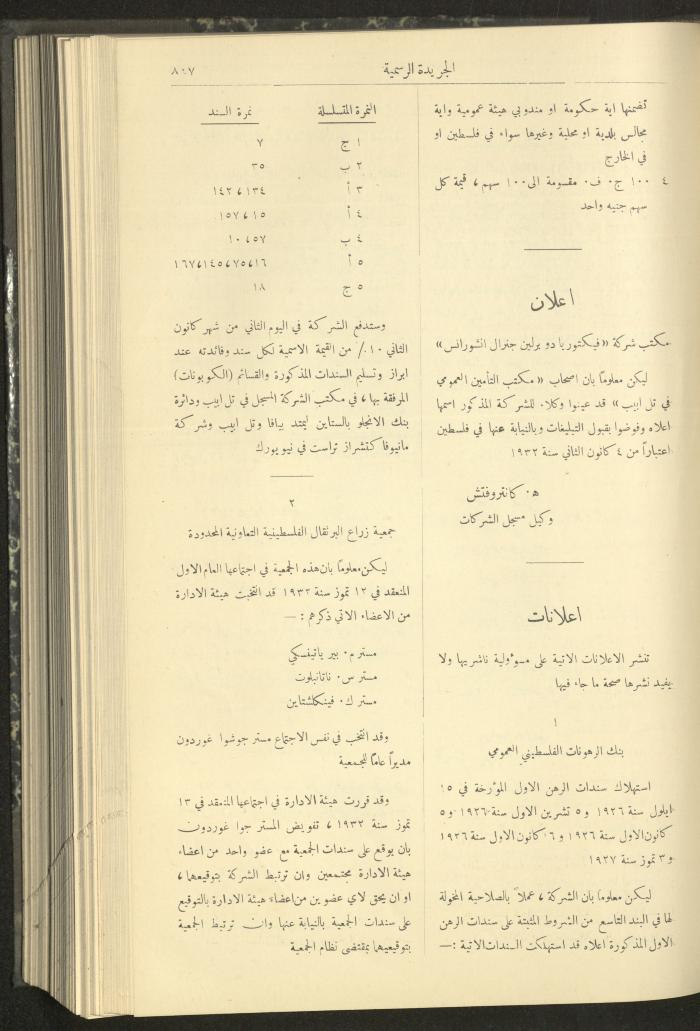 الجريدة الرسمية ٨٤٧
تضمنها اية حكومة او مندوبي هيئة عمومية واية
مجالس بلدية او محلية وغيرها سواء في فلسطين او
في الخارج
٤ ١٠٠ ج٠ ف٠ مقسومة الى ١٠٠ سهم ، قيمة كل
سهم جنيه واحد
اعلان
مكتب شركة « فيكتوريا دو برلين جنرال انشورانس »
ليكن معلوماً بان اصحاب « مكتب التأمين العمومي
في تل ابيب » قد عينوا وكلاء للشركة المذكور اسمها
اعلاه وفوضوا بقبول التبليغات وبالنيابة عنها في فلسطين
اعتباراً من ٤ كانون الثاني سنة ١٩٣٢
ه٠ كانتروفتش
وكيل مسجل الشركات
اعلانات
تنشر الاعلانات الاتية على مسوءولية ناشريها ولا
يفيد نشرها صحة ما جاء فيها
١
بنك الرهونات الفلسطيني العمومي
استهلاك سندات الرهن الاول الموءرخة في ١٥
ايلول سنة ١٩٢٦ و ٥ تشرين الاول سنة ١٩٢٦ و ٥
كانون الاول سنة ١٩٢٦ و ٦ كانون الاول سنة ١٩٢٦
و ٣ تموز سنة ١٩٢٧
ليكن معلوما بان الشركة ، عملاً بالصلاحية المخولة
لها في البند التاسع من الشروط المثبتة على سندات الرهن
الاول المذكورة اعلاه قد استهلكت السندات الاتية :—
النمرة المتسلسلة نمرة السند
١ ج ٧
٢ ب ٣٥
٣ أ ١٣٤ ، ١٤٢
٤ أ ١٥ ، ١٥٧
٤ ب ٥٧ ، ١٠
٥ أ ١٦ ، ٧٥ ، ١٤٥ ، ١٦٧
٥ ج ١٨
وستدفع الشركة في اليوم الثاني من شهر كانون
الثاني ١٠٪ من القيمة الاسمية لكل سند وفائدته عند
ابراز وتسليم السندات المذكورة والقسائم (الكوبونات)
المرفقة بها ، في مكتب الشركة المسجل في تل ابيب ودائرة
بنك الانجلو بالستاين ليمتد بيافا وتل ابيب وشركة
مانيوفاكتشراز تراست في نيويورك
٢
جمعية زراع البرتقال الفلسطينية التعاونية المحدودة
ليكن معلومًا بان هذه الجمعية في اجتماعها العام الاول
المنعقد في ١٢ تموز سنة ١٩٣٢ قد انتخبت هيئة الادارة
من الاعضاء الاتي ذكرهم : —
مستر م٠ بير ياتيفسكي
مستر س٠ ناتانبلوت
مستر ك٠ فينكلشتاين
وقد انتخب في نفس الاجتماع مستر جوشوا غوردون
مديراً عامًا للجمعية
وقد قررت هيئة الادارة في اجتماعها المنعقد في ١٣
تموز سنة ١٩٣٢ ، تفويض المستر جوا غوردون
بان يوقع على سندات الجمعية مع عضو واحد من اعضاء
هيئة الادارة مجتمعين وان ترتبط الشركة بتوقيعها ،
او ان يحق لاي عضوين من اعضاء هيئة الادارة بالتوقيع
على سندات الجمعية بالنيابة عنها وان ترتبط الجمعية
بتوقيعيهما بمقتضى نظام الجمعية